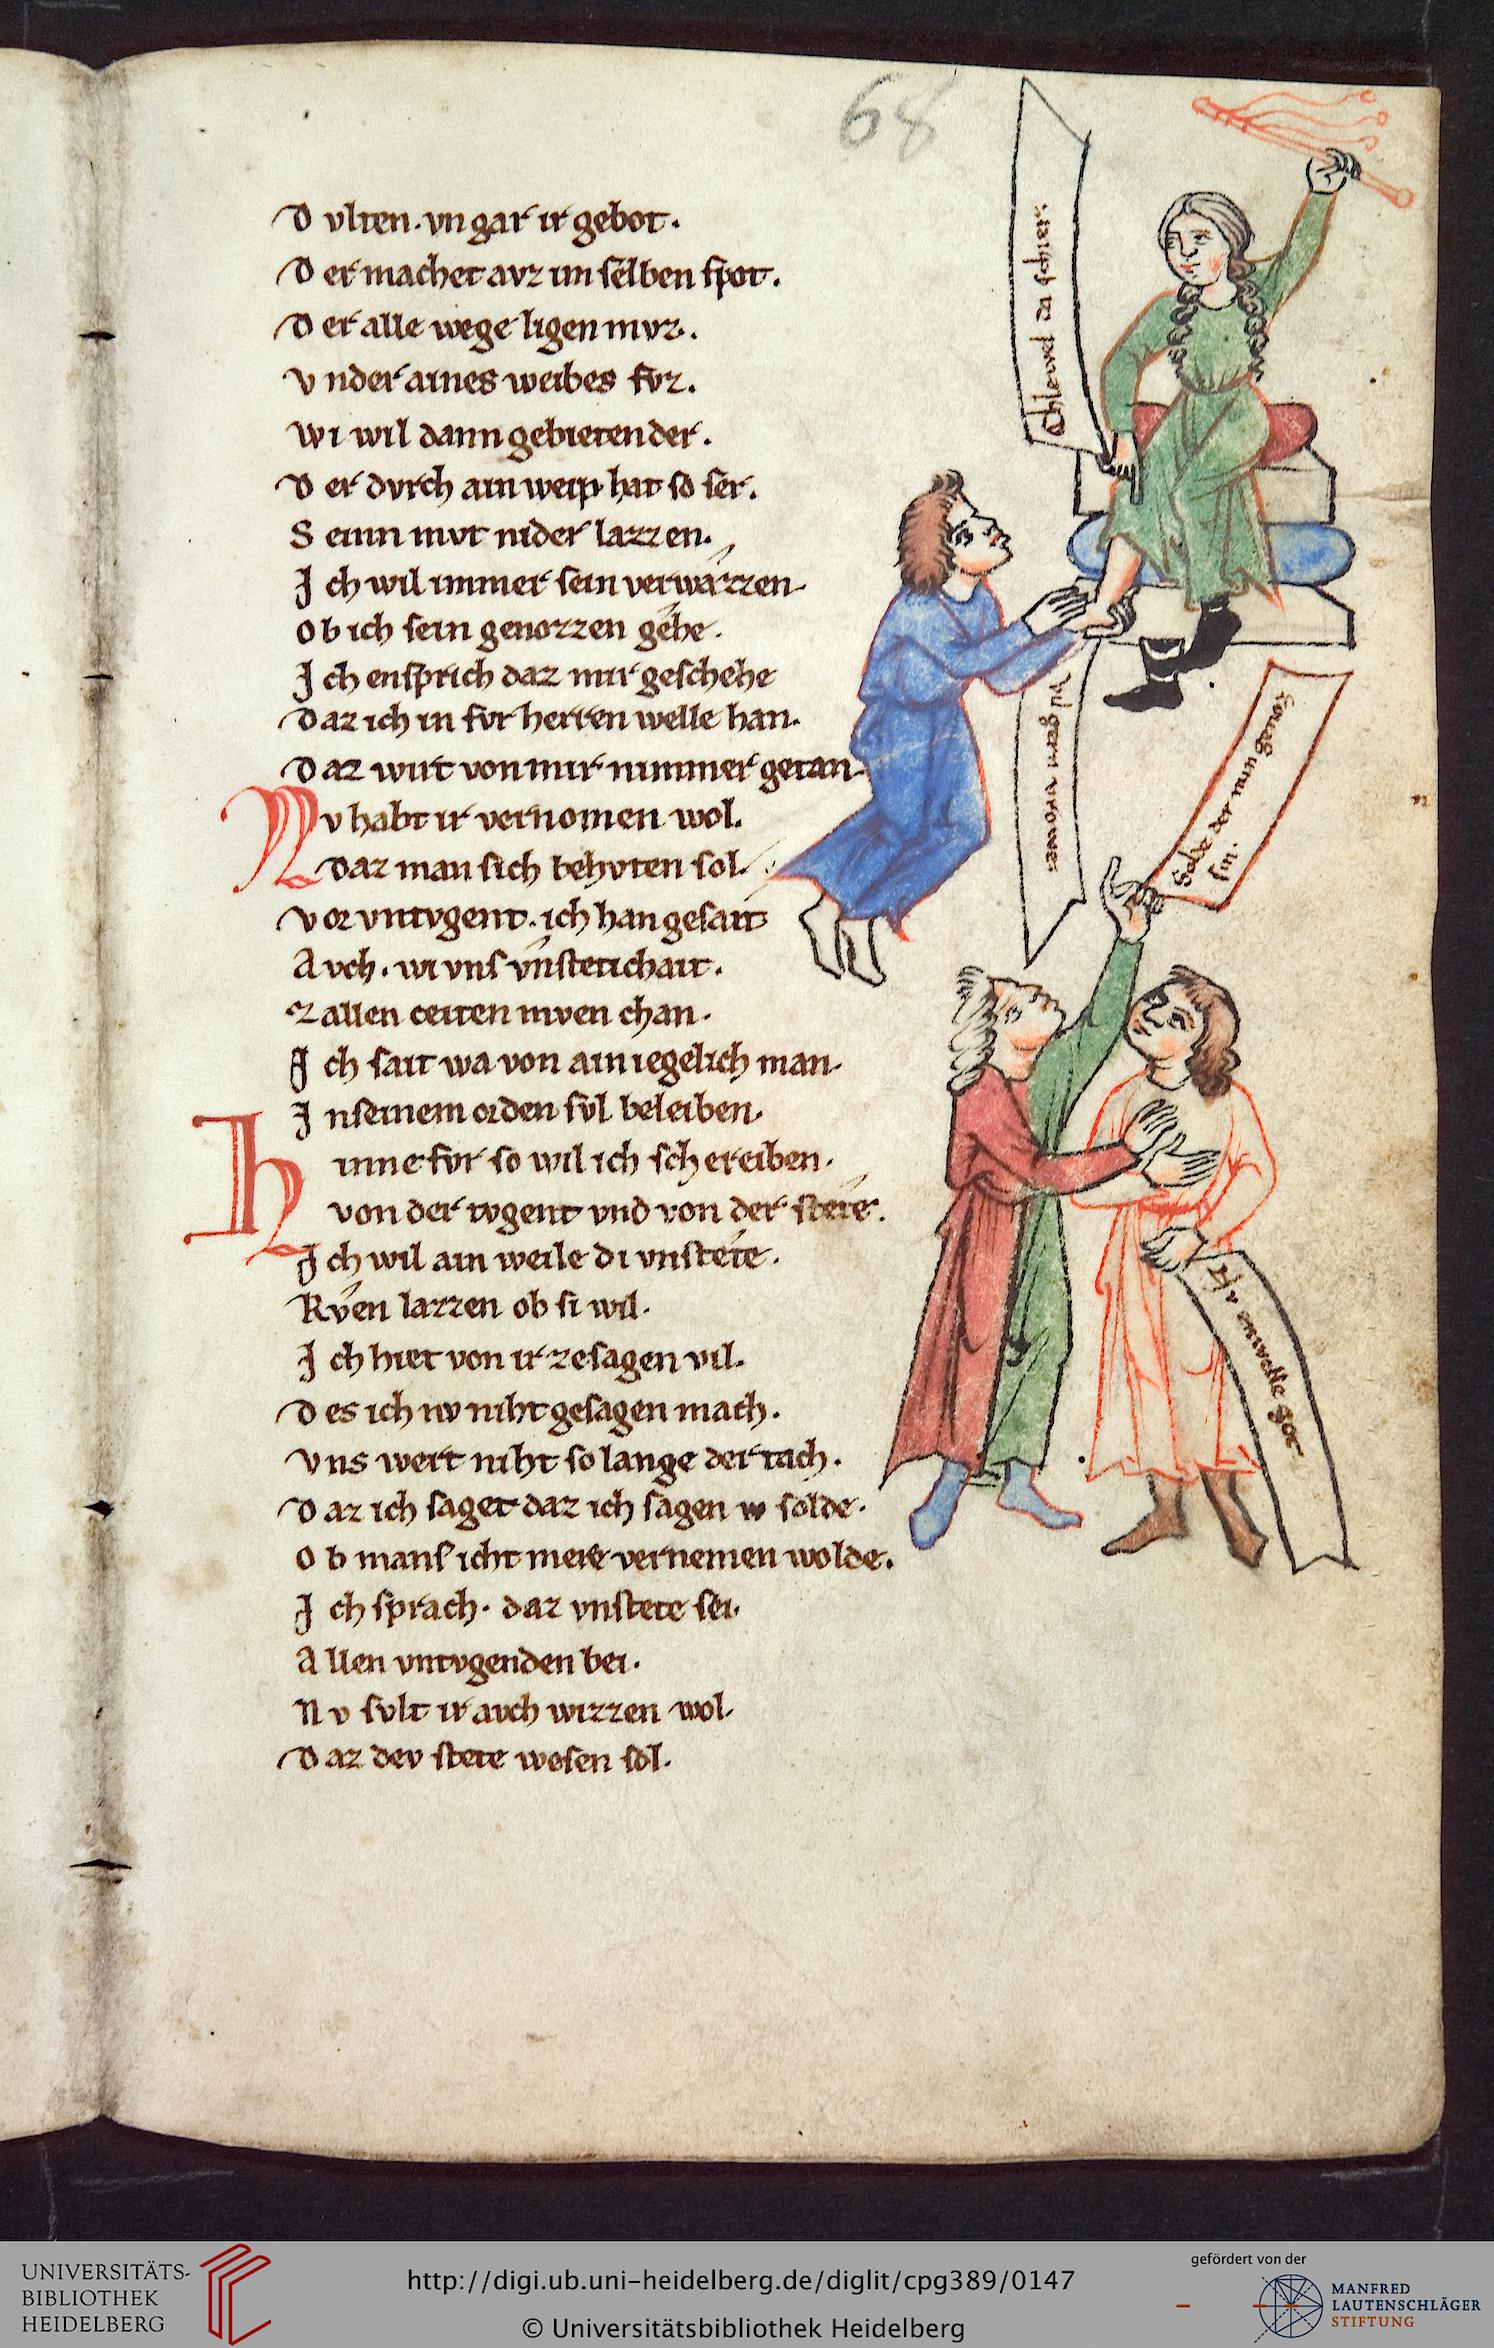 68
D vlten. vn gar ir gebot.
D er machet avz im selben spot.
D er alle wege ligen mvz.
V nder aines weibes fvz.
Wi wil dann gebieten der.
D er dvrch ain weip hat so ser.
S einn mvt nider lazzen.
J ch wil immer sein verwazzen.
O b ich sein genozzen gehe.
J ch ensprich daz mir geschehe
D az ich in fvr herren welle han.
D az wirt von mir nimmer getan.
Nv habt ir vernomen wol.
daz man sich behvten sol.
V or vntvgent. ich han gesait
A vch. wi vns vnstetichait.
Z allen ceiten mven chan.
J ch sait wa von ain iegelich man.
J nseinem orden svl beleiben.
Hinne fvr so wil ich schereiben.
von der tvgent vnd von der stete.
J ch wil ain weile di vnstete.
Rven lazzen ob si wil.
J ch hiet von ir ze sagen vil.
D es ich nv niht gesagen mach.
V ns wert niht so lange der tach.
D az ich saget daz ich sagen solde.
O b mans icht mere vernemen wolde.
J ch sprach. daz vnstete sei.
A llen vntvgenden bei.
N v svlt ir avch wizzen wol.
D az dev stete wesen sol.
Chlewel da schier.
vil gern vrowe
Solde der min genoz
sin.
Nv enwelle got
UNIVERSITÄTS-
BIBLIOTHEK
HEIDELBERG
http://digi.ub.uni-heidelberg.de/diglit/cpg389/0147
© Universitätsbibliothek Heidelberg
gefördert von der
MANFRED
LAUTENSCHLÄGER
STIFTUNG